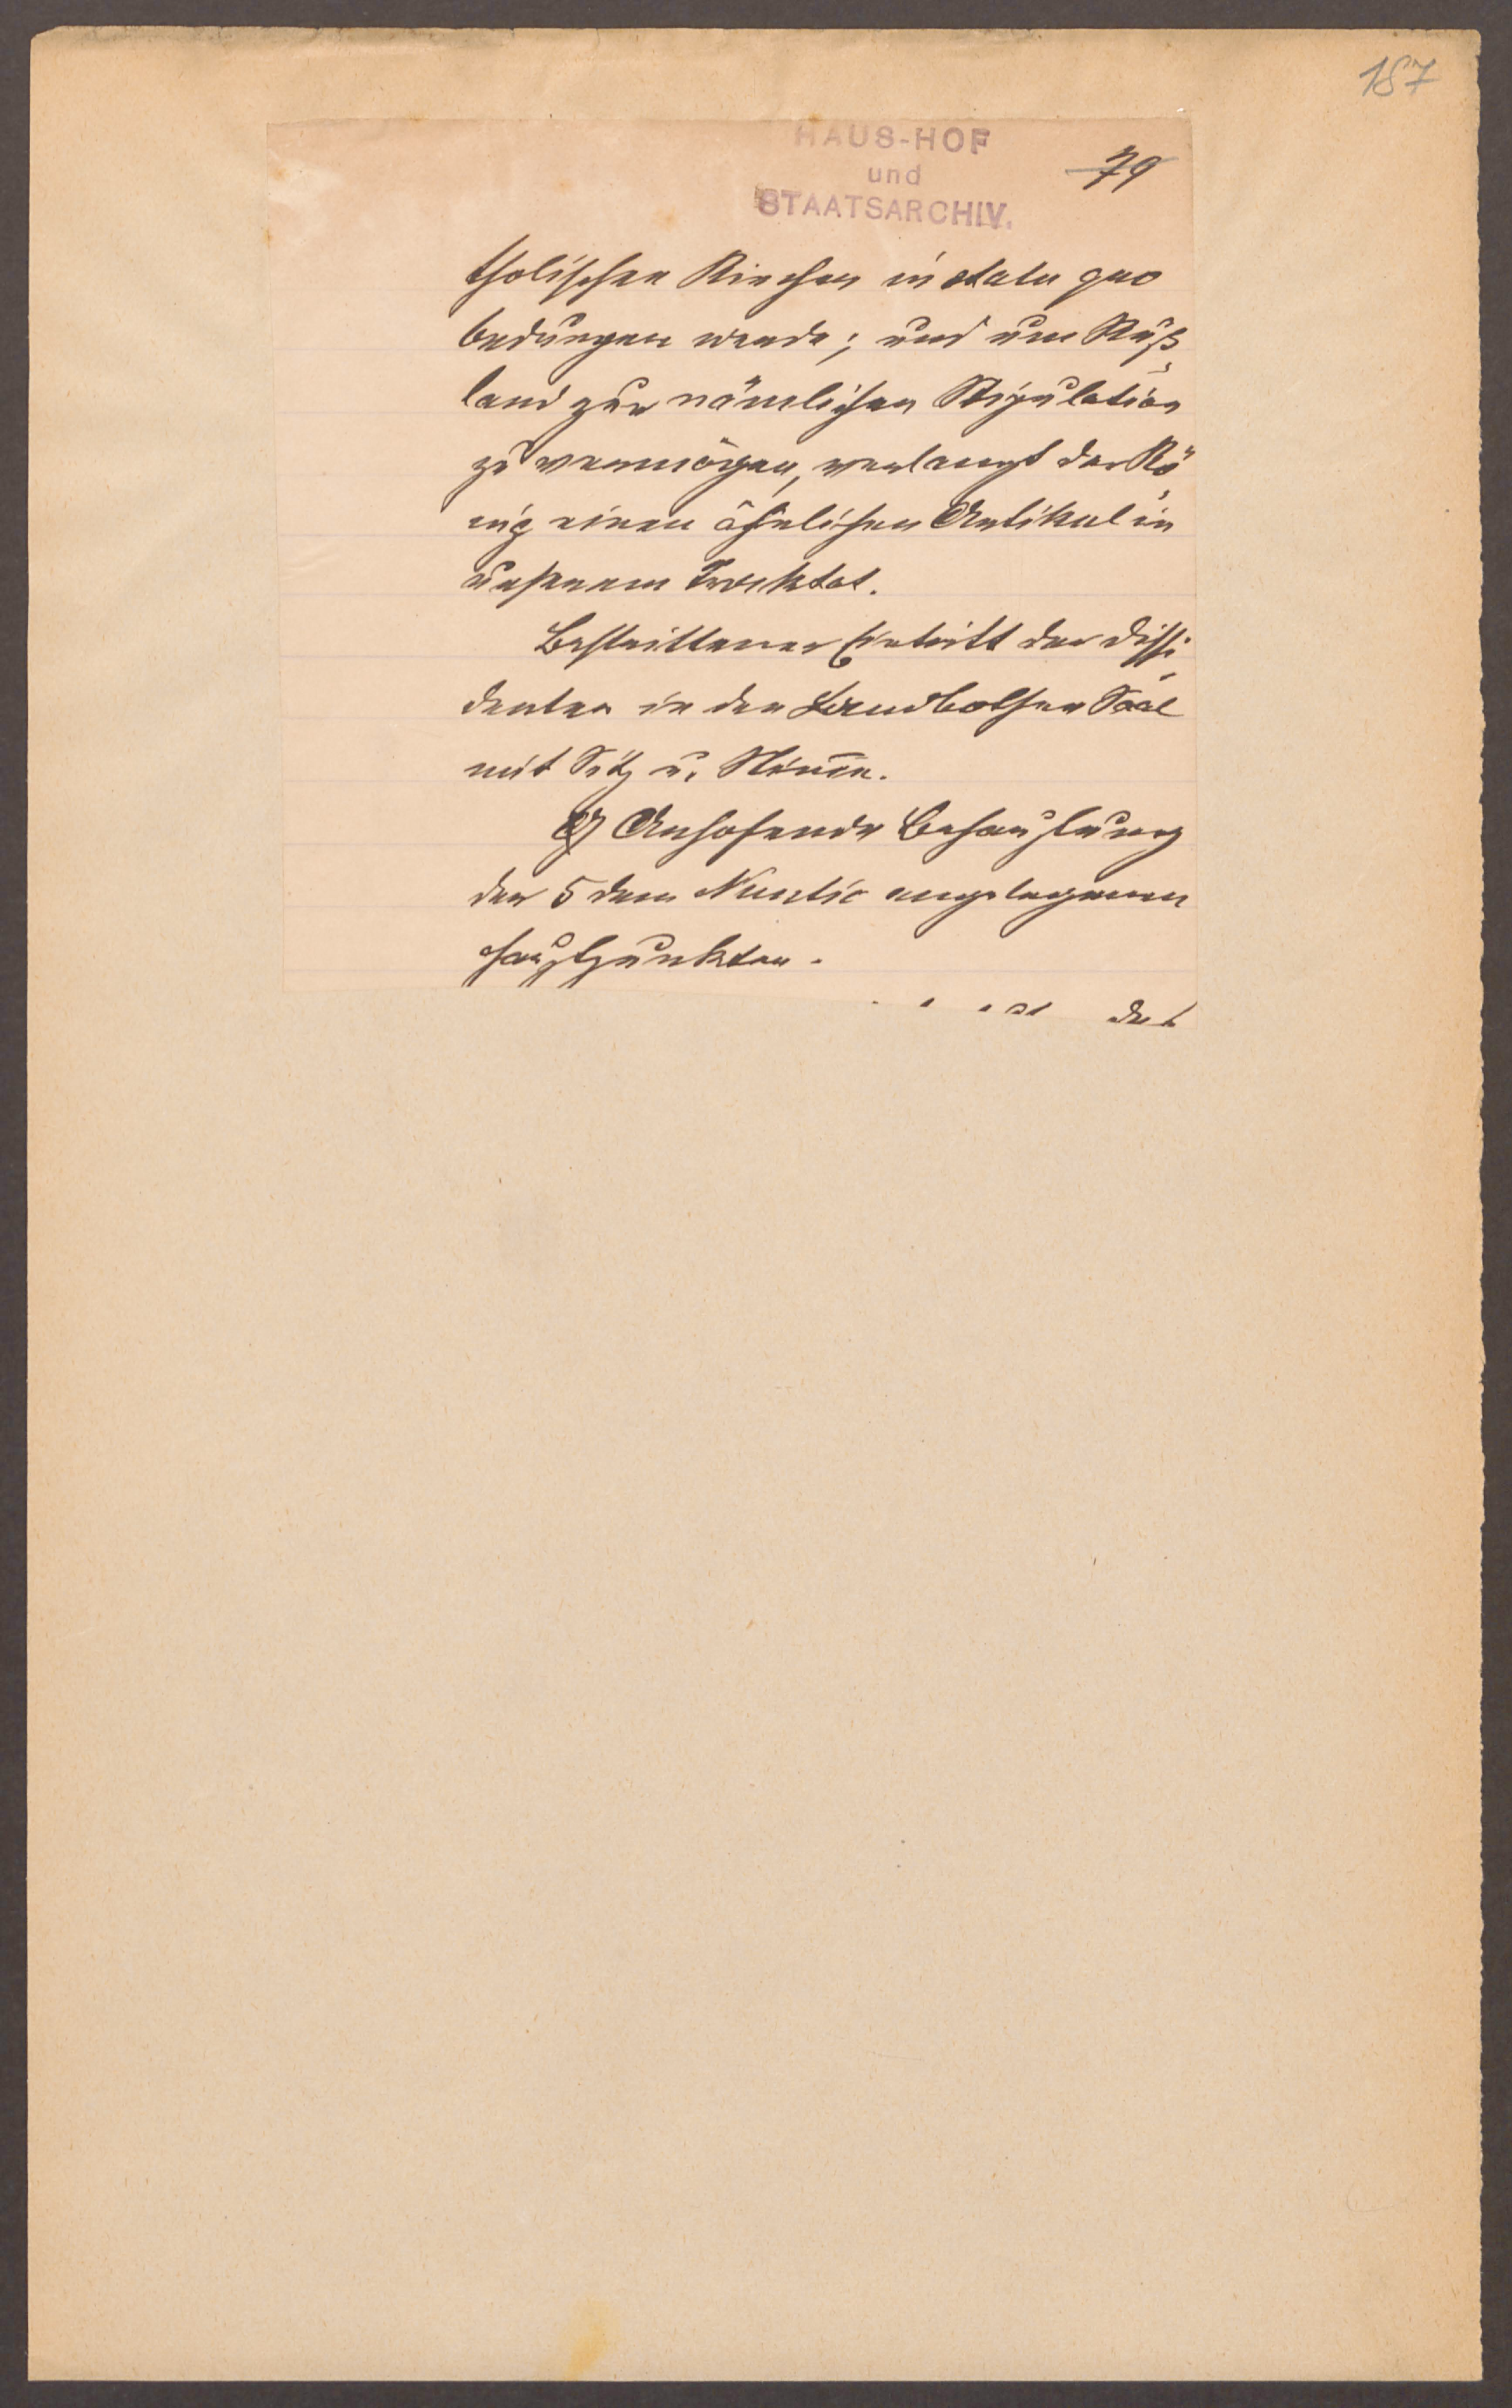 187
HAUS-HOF
79
und
STAATSARCHIV.
tholischen Kirchen in statu quo
bedungen werde; und um Ruß-
land zur nämlichen Stipulation
zu vermögen, verlangt der Kö-
nig einen ähnlichen Artikel in
unserem Tracktat.
Bestrittener Eintritt der Dissi-
denten in den Landbothen Saal
mit Sitz u. Stim̄e.
Ansehende Behauptung
der 5 dem Nuntio angelegenen
Hauptpunkten.